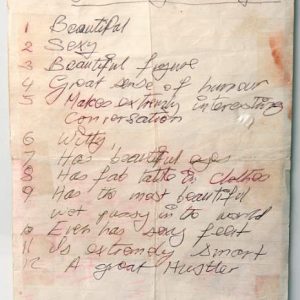 1 Beautiful
2 Sexy
3 Beautiful figure
4 Great sense of humour
5 Makes extremly interesting
Conversation
6 Witty
7 Has beautiful eyes
8 Has fab taste in clothes
9 Has the most beautiful
wet pussy in to world
10 Even has sexy feet
11 Is extremely smart
12 A great Hustler